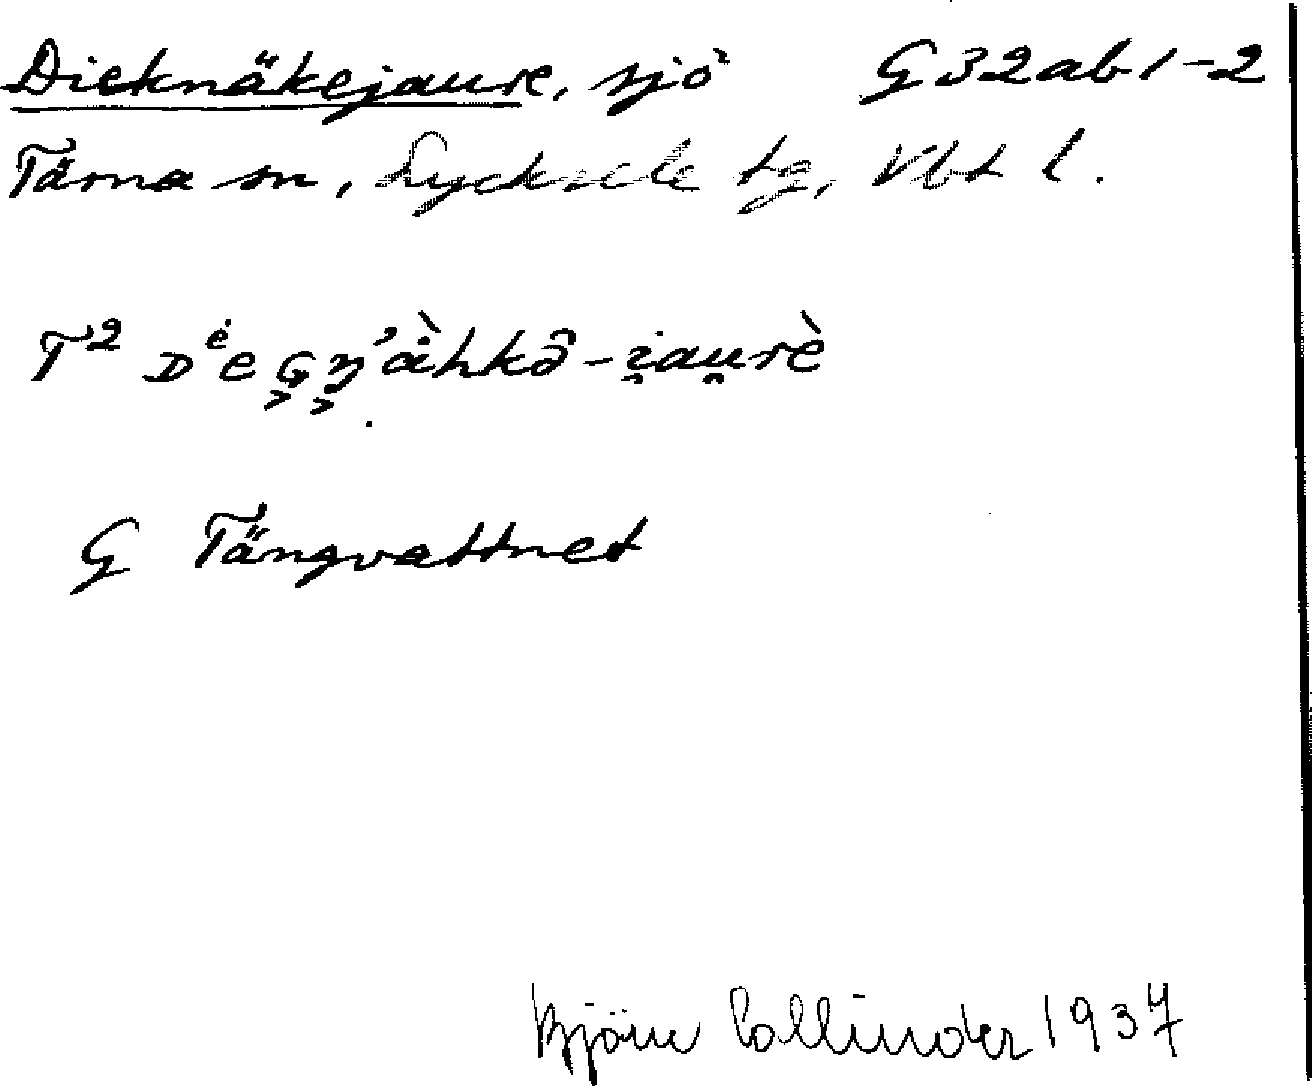 Dieknäkejaure, sjö G32ab1-2
Tärna sn, Lycksele tg, Vbt l.
T² ᴅėeɢ̥ŋ̥'àhkô-i̯au̯rè
G Tängvattnet
Björn Collinder 1937